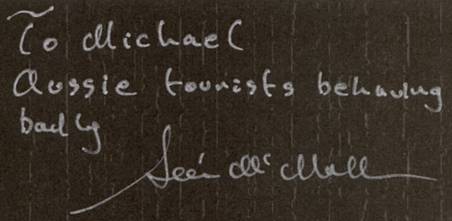 To Michael
Aussie tourists behaving
badly
Seán Mc